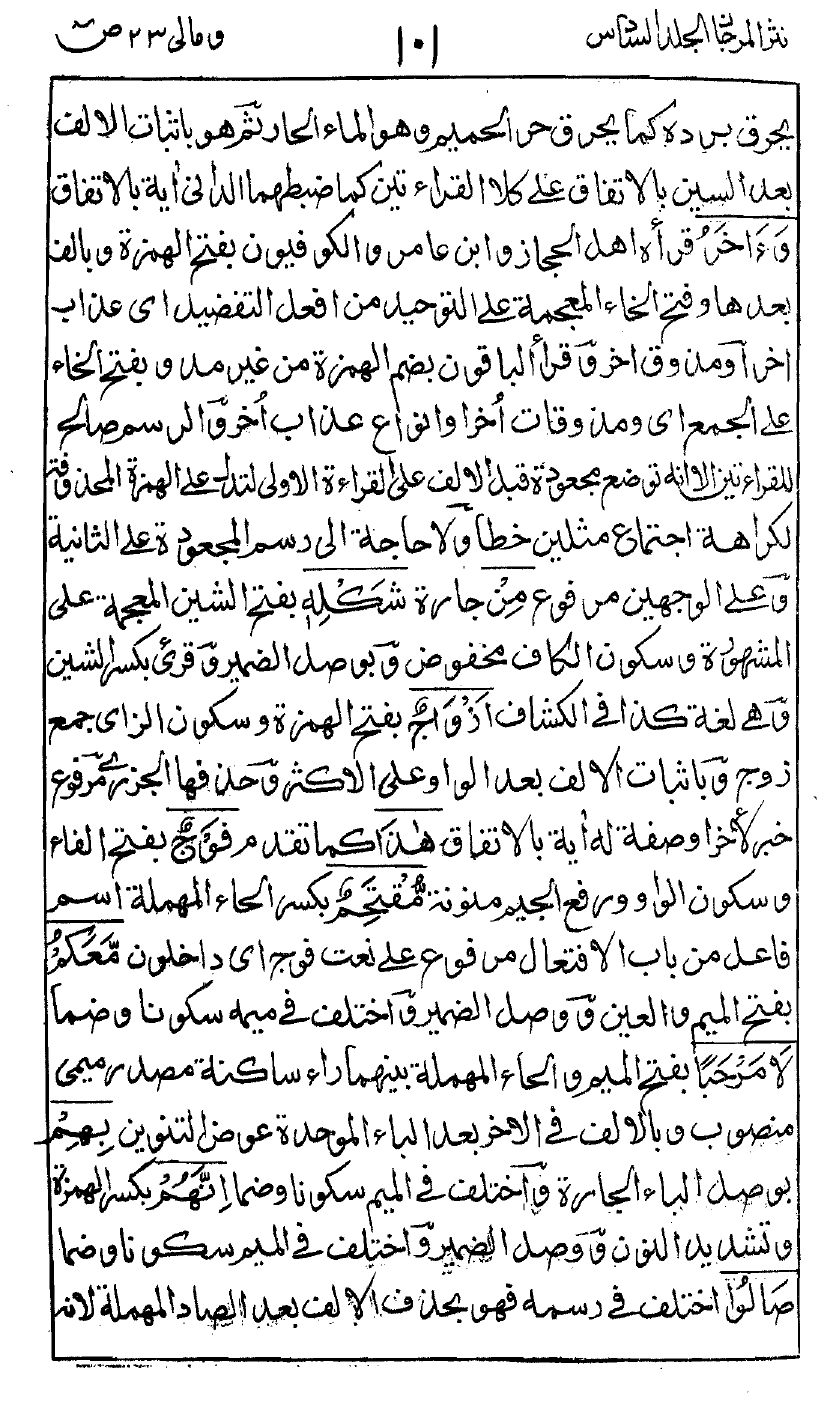 نثر المرجان الجلد السادس ١٠١ ومالی ٢٣ ص
يحرق برده كما يحرق حر الحميم وهو الماء الحار ثم هو باثبات الالف
بعد السين بالاتفاق على كلا القراءتين كما ضبطهما الدانى أية بالاتفاق
وَءَاخَرُ قرأه اهل الحجاز وابن عامر والكوفيون بفتح الهمزة وبالف
بعدها وفتح الخاء المعجمة على التوحيد من افعل التفضيل اى عذاب
اخر اومذوق اخر وقرأ الباقون بضم الهمزة من غير مد وبفتح الخاء
على الجمع اى ومذوقات أخر اوانواع عذاب أخر والرسم صالح
للقراءتين الاانه توضع مجعودة قبل الالف على القراءة الاولى لتدل على الهمزة المحذوفة
لكراهة اجتماع مثلين خطا ولاحاجة الى رسم المجعودة على الثانية
وعلى الوجهين مرفوع مِنْ جارة شَكْلِهٖ بفتح الشين المعجمة على
المشهورة وسكون الكاف مخفوض وبوصل الضمير وقرئ بكسر الشين
وهى لغة كذا فى الكشاف اَزْوَاجٌ بفتح الهمزة وسكون الزاى جمع
زوج وباثبات الالف بعد الواو على الاكثر وحذفها الجزرى مرفوع
خبر لأخر اوصفة له أية بالاتفاق هٰذَا كما تقدم فَوْجٌ بفتح الفاء
وسكون الواو ورفع الجيم منونة مُّقْتَحِمٌ بكسر الحاء المهملة اسم
فاعل من باب الافتعال مرفوع على نعت فوج اى داخلون مَّعَكُمْ
بفتح الميم والعين ووصل الضمير واختلف فى ميمه سكونا وضما
لَا مَرْحَبًا بفتح الميم والحاء المهملة بينهما راء ساكنة مصدر ميمى
منصوب وبالالف فى الاخر بعد الباء الموحدة عوض التنوين بِهِمْ
بوصل الباء الجارة واختلف فى الميم سكونا وضما اِنَّهُمْ بكسر الهمزة
وتشديد النون ووصل الضمير واختلف فى الميم سكونا وضما
صَالُوا اختلف فى رسمه فهو بحذف الالف بعد الصاد المهملة لانه